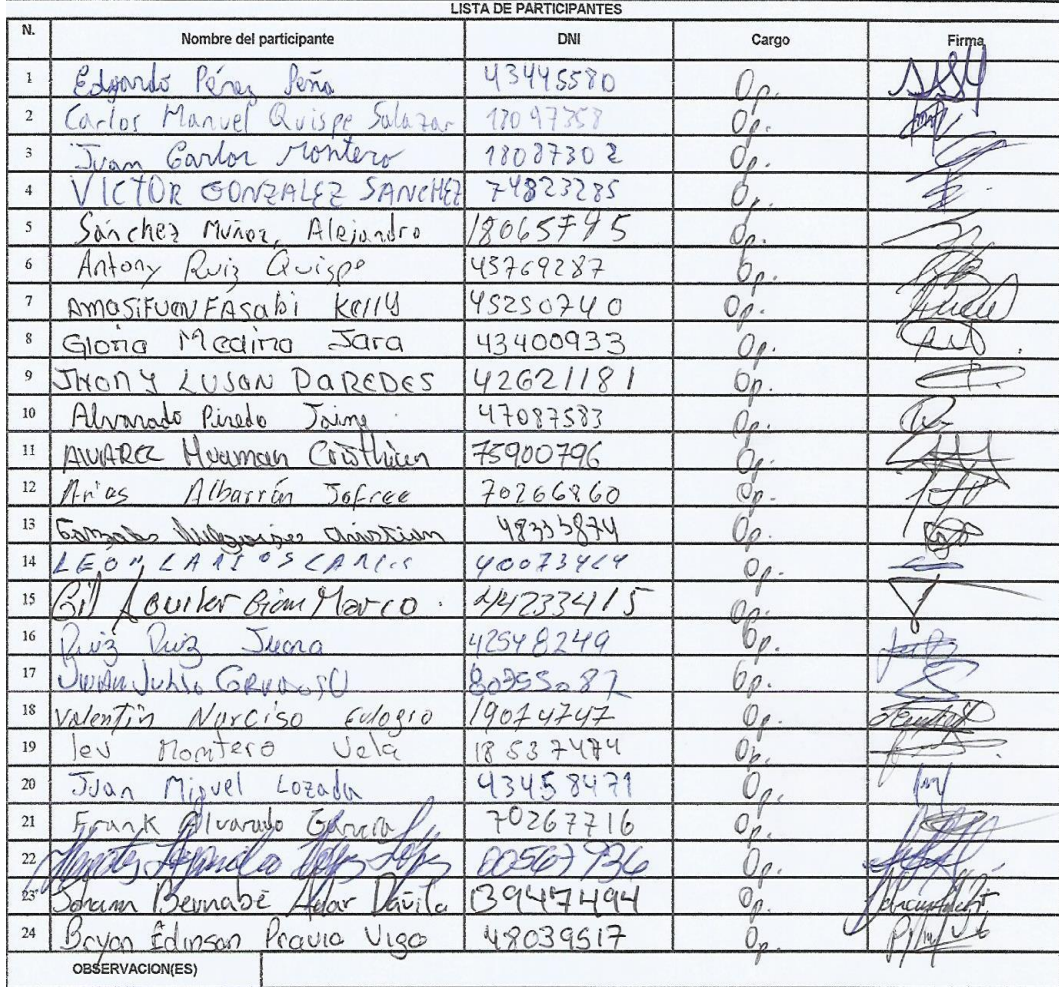 LISTA DE PARTICIPANTES
N. Nombre del participante DNI Cargo Firma
1 Edgardo Pérez Peña 43445580 Op.
2 Carlos Manuel Quispe Salazar 18097358 Op.
3 Juan Carlos Montero 18087302 Op.
4 VICTOR GONZALEZ SANCHEZ 74823285 Op.
5 Sánchez Muñoz, Alejandro 18065745 Op.
6 Antony Ruiz Quispe 45769287 Op.
7 AMASIFUEN FASabi Kelly 45250740 Op.
8 Gloria Medina Jara 43400933 Op.
9 JHONY LUJAN PAREDES 42621181 Op.
10 Alvarado Pinedo Jaime 47087583 Op.
11 ALVAREZ Huaman Cristhian 75900796 Op.
12 Arias Albarrán Jofree 70266860 Op.
13 Christian Op.
14 LEON Op.
15 Gil Aguilar Gian Marco. 44233415 Op.
16 Ruiz Ruiz Juana 42548249 Op.
17 Op.
18 Valentín Narciso Eulogio 19074747 Op.
19 lev Montero Vela 18537474 Op.
20 Juan Miguel Lozada 43458471 Op.
21 Frank Alvarado García 70267716 Op.
22 López 00567936 Op.
23 Bernabé Dávila 39447494 Op.
24 Bryan Edinson Pravia Vigo 48039517 Op.
OBSERVACION(ES)